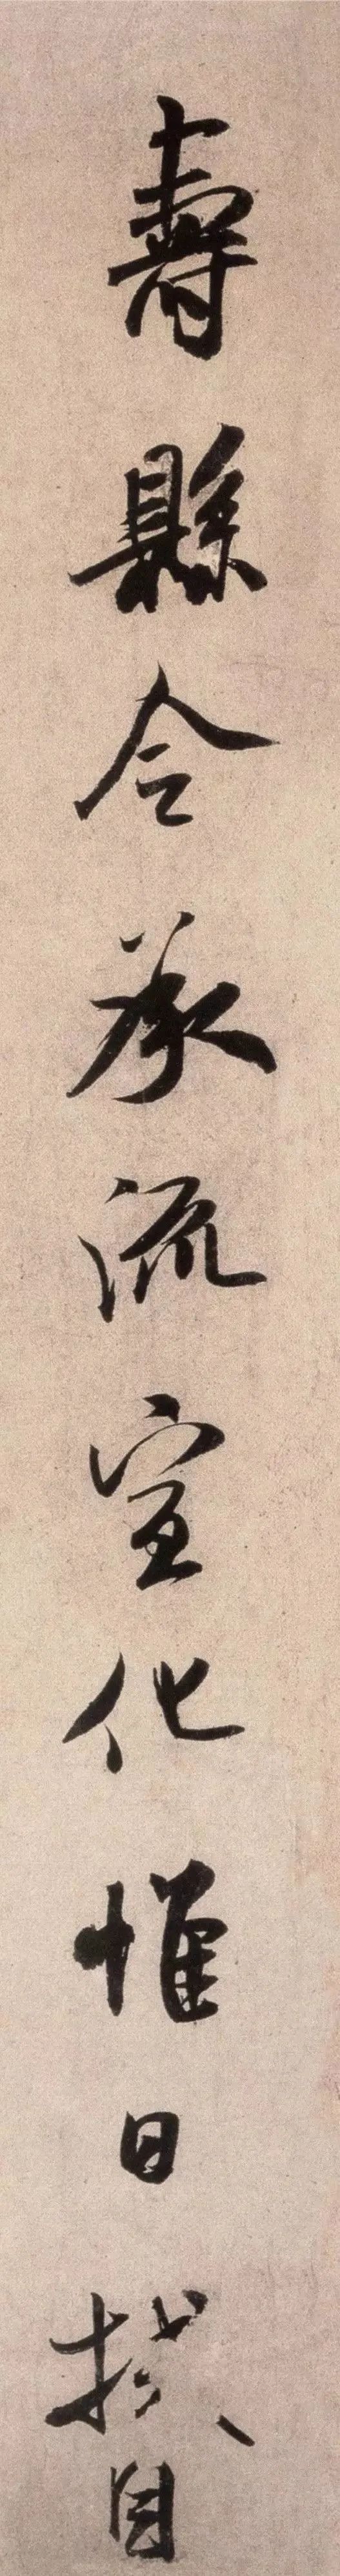 壽縣令承流宣化惟日拭目